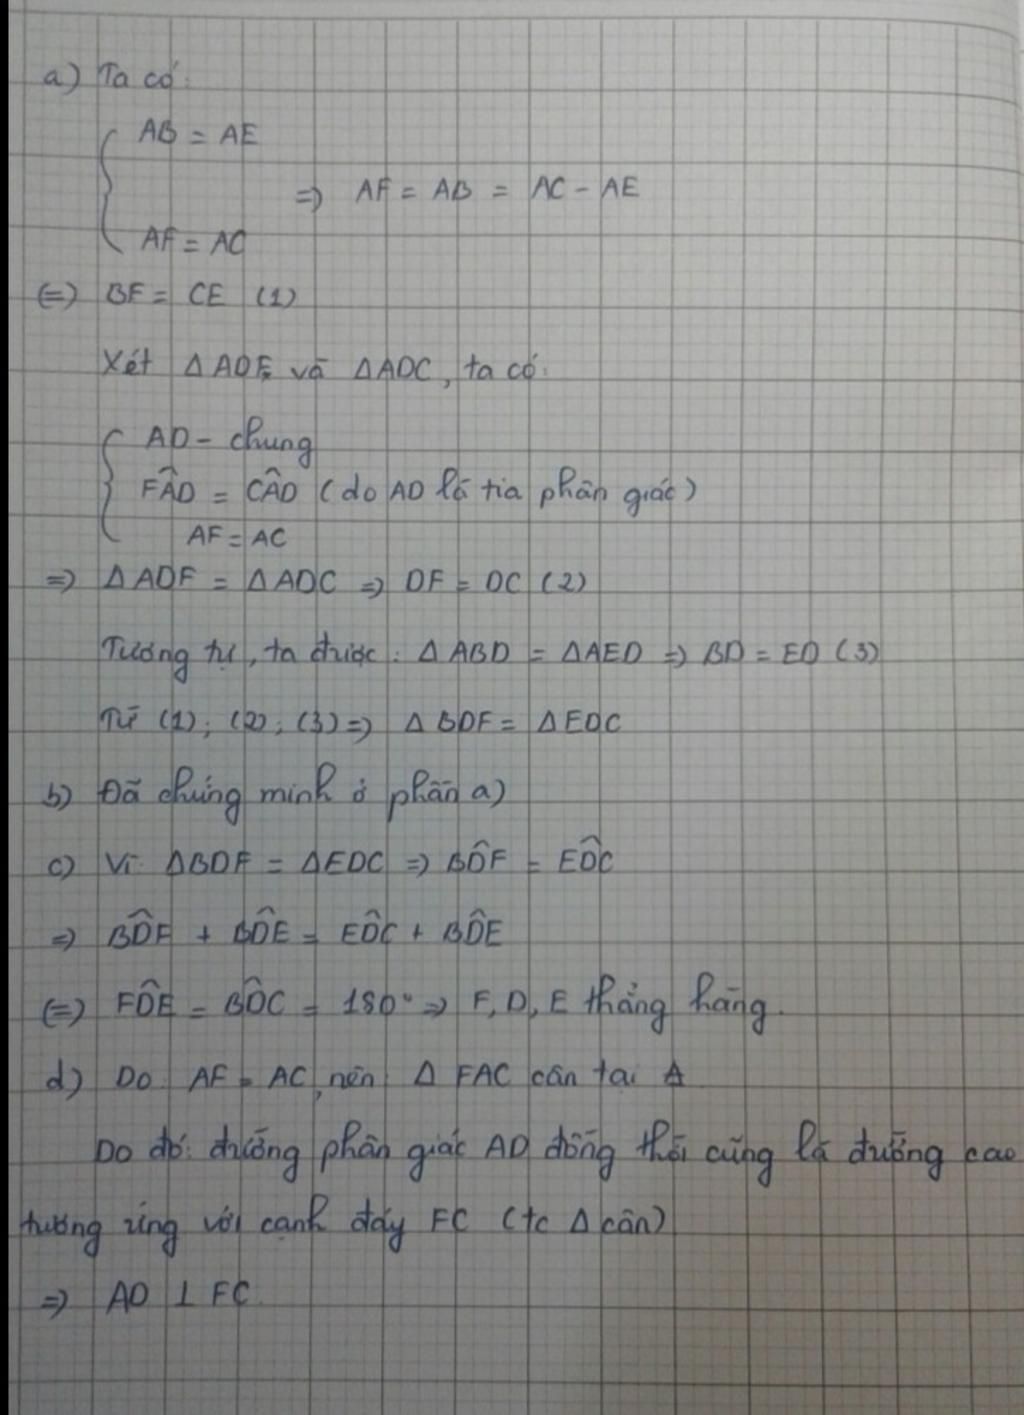 a) Ta có:
AB = AE
=> AF = AB = AC - AE
AF = AC
(=) BF = CE (1)
Xét Δ ADF và Δ ADC, ta có:
AD - chung
FÂD = CÂD (do AD là tia phân giác)
AF = AC
=> Δ ADF = Δ ADC => DF = DC (2)
Tương tự, ta được: Δ ABD = Δ AED => BD = ED (3)
Từ (1); (2); (3) => Δ BDF = Δ EDC
b) Đã chứng minh ở phần a)
c) Vì ΔBDF = ΔEDC => BD̂F = ED̂C
=> BD̂F + BD̂E = ED̂C + BD̂E
(=) FD̂E = BD̂C = 180° => F, D, E thẳng hàng.
d) Do AF = AC, nên Δ FAC cân tại A
Do đó: đường phân giác AD đồng thời cũng là đường cao
tương ứng với cạnh đáy FC (tc Δ cân)
=> AD ⊥ FC